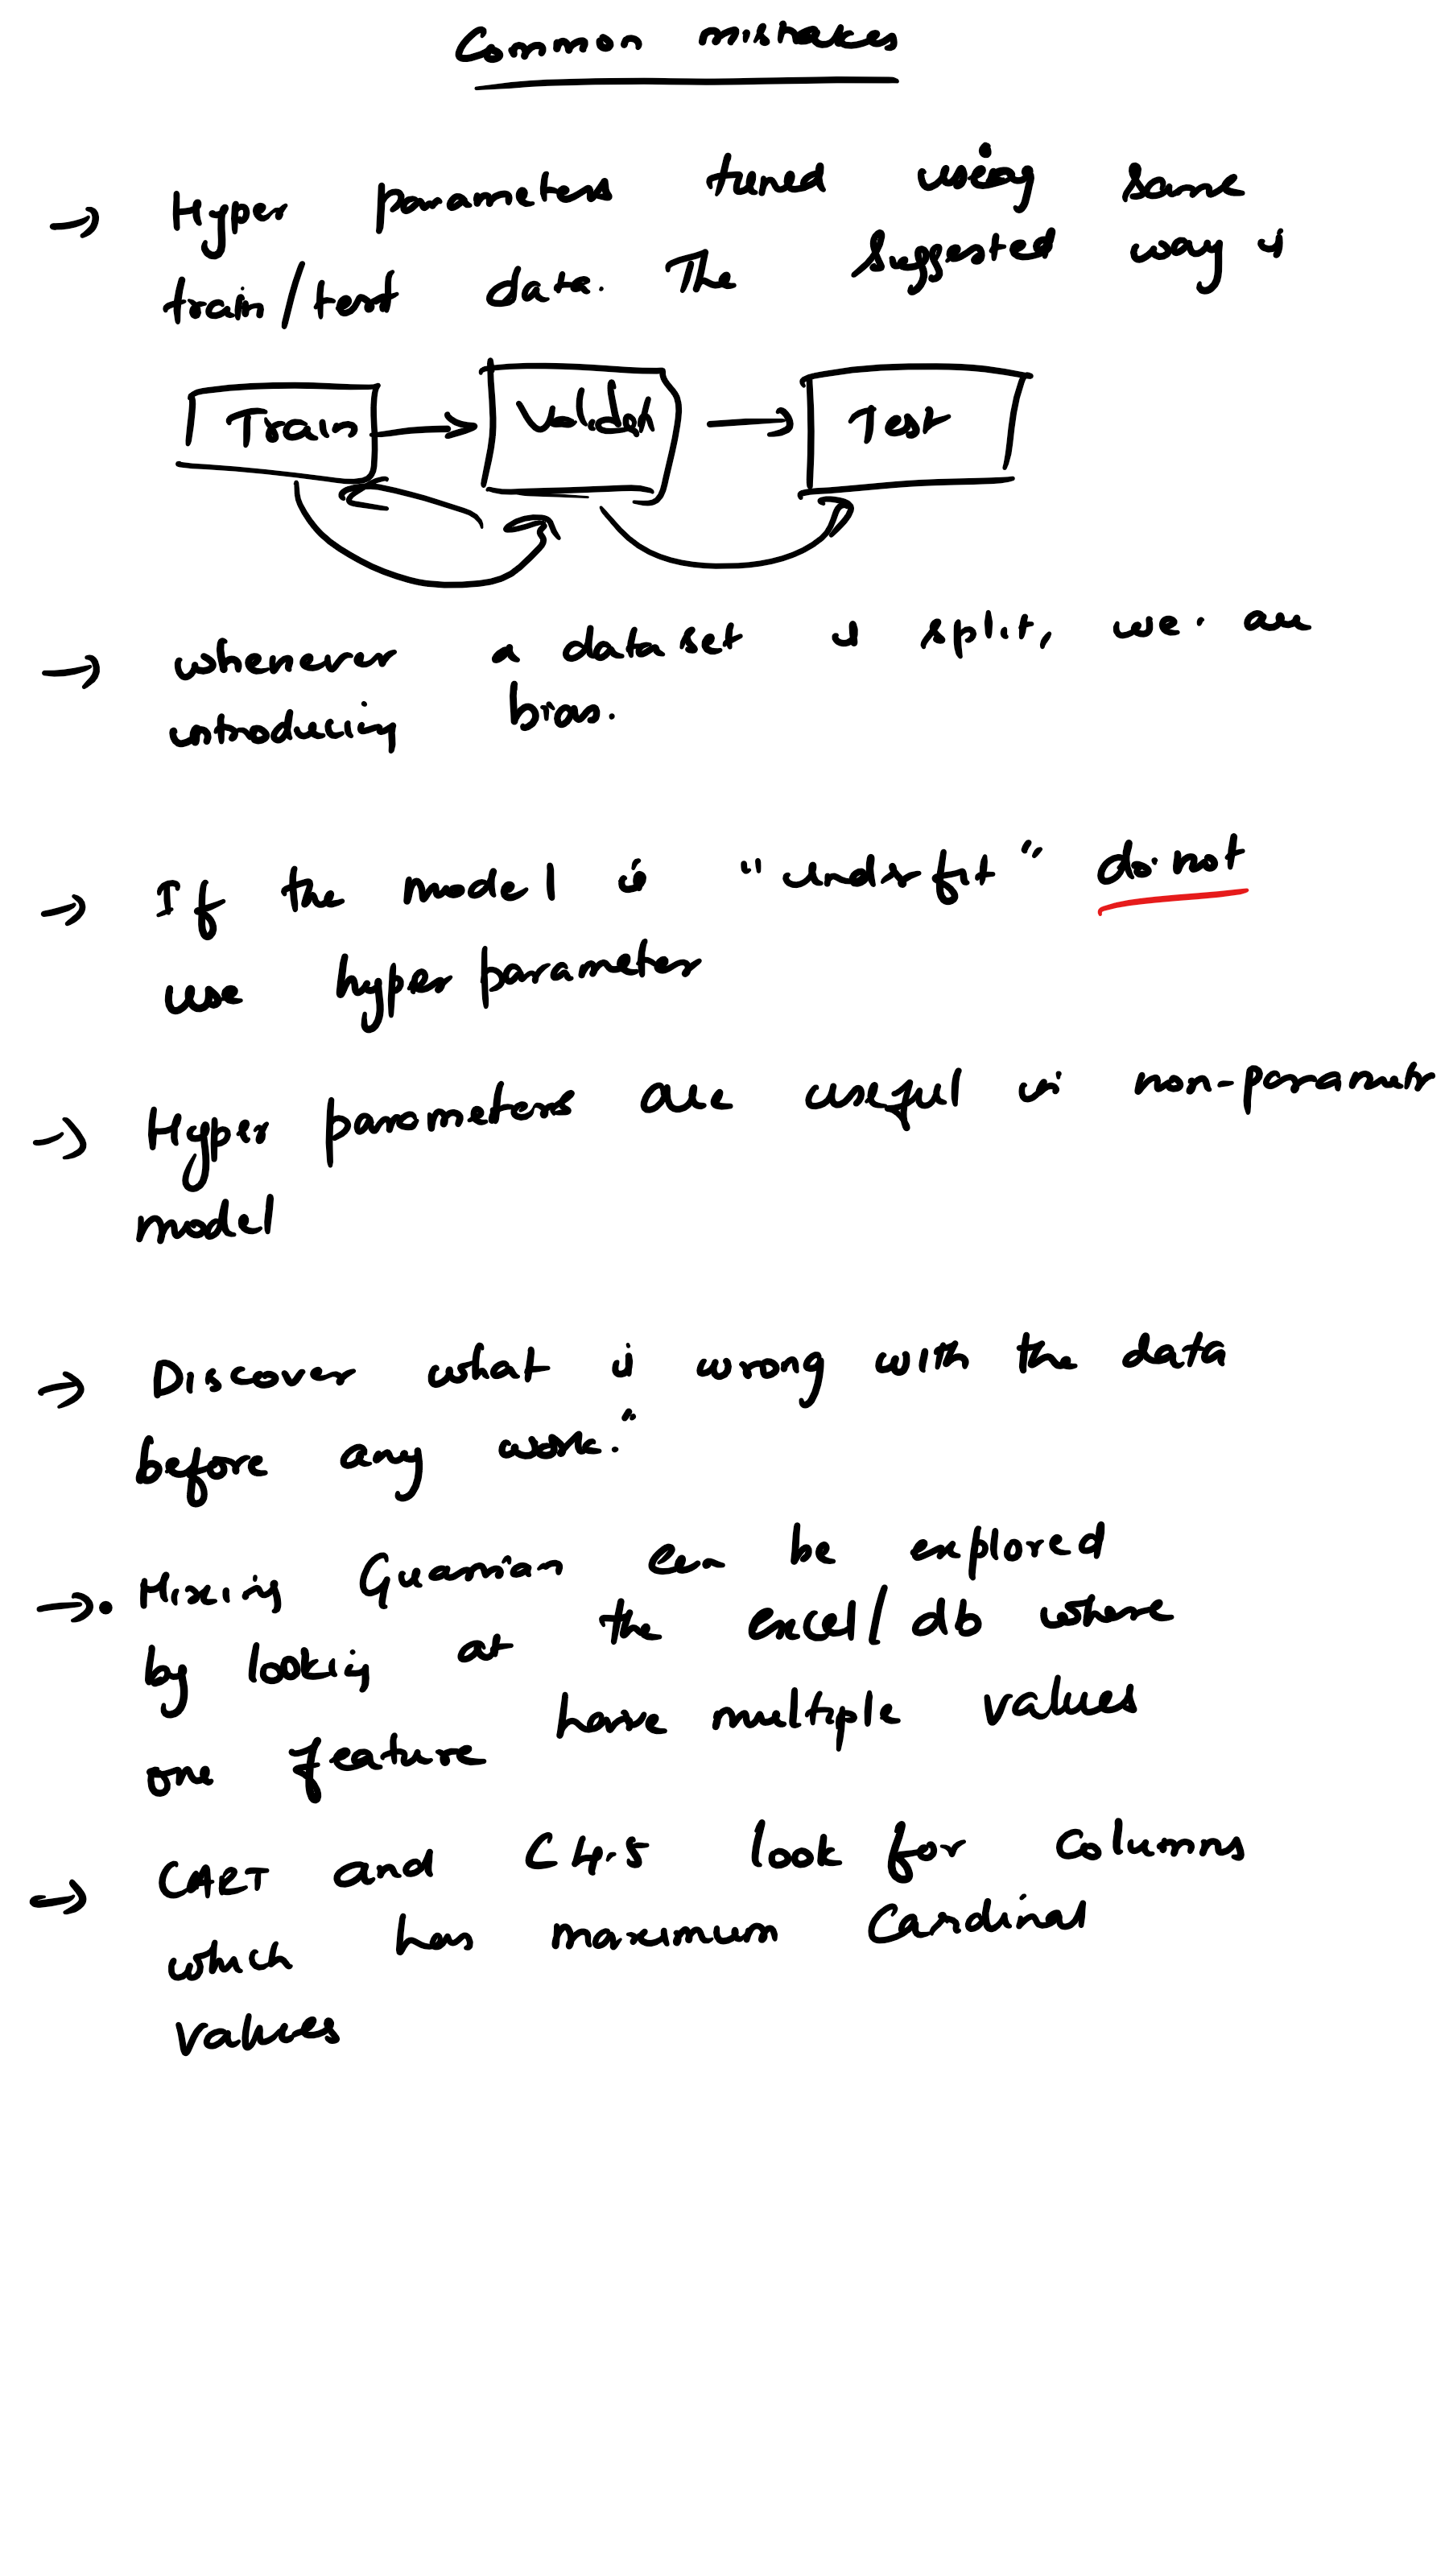 Common mistakes
→ Hyper parameters tuned using same
train/test data. The suggested way is
Train → Validn → Test
→ whenever a data set is split, we are
introducing bias.
→ If the model is "underfit" do not
use hyper parameter
→ Hyper parameters are useful in non-parametr
model
→ Discover what is wrong with the data
before any work."
→ • Mixing Guassian can be explored
by looking at the excel/db where
one feature have multiple values
→ CART and C4.5 look for columns
which has maximum Cardinal
values